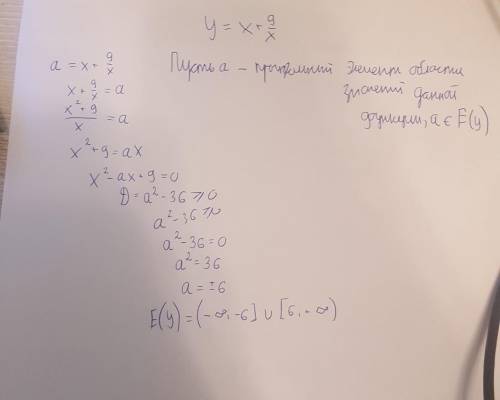 y = x + 9/x
a = x + 9/x
Пусть a – произвольный элемент области
значений данной
функции, a ∈ E(y)
x + 9/x = a
(x² + 9)/x = a
x² + 9 = ax
x² - ax + 9 = 0
D = a² - 36 ≥ 0
a² - 36 ≥ 0
a² - 36 = 0
a² = 36
a = ±6
E(y) = (-∞, -6] ∪ [6, -∞)